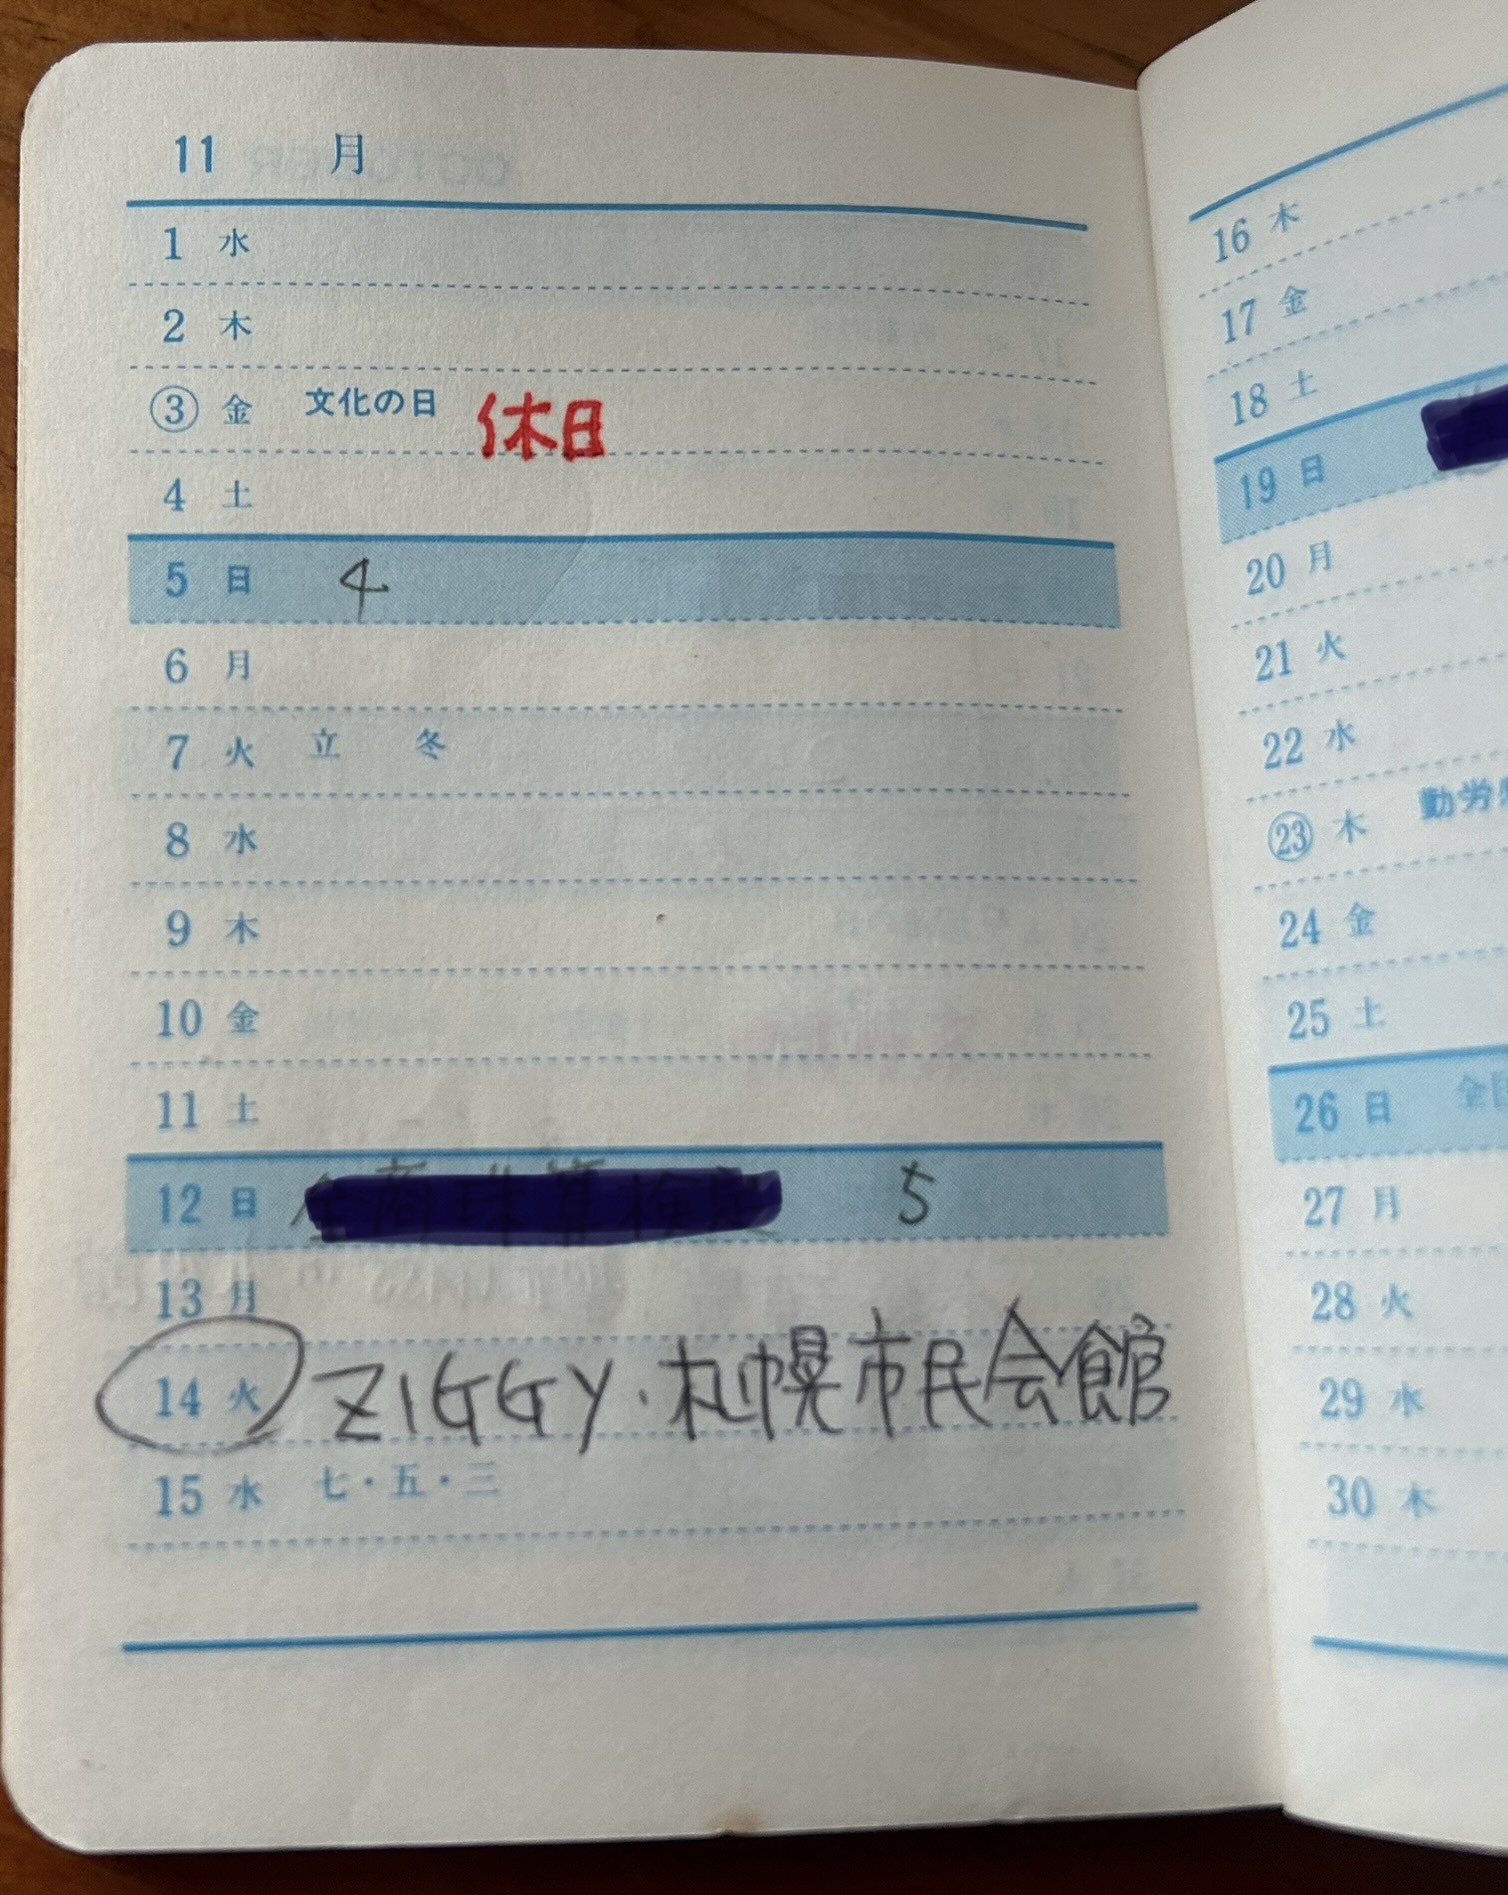 11 月
1 水
2 木
③ 金 文化の日 休日
4 土
5 日 4
6 月
7 火 立 冬
8 水
9 木
10 金
11 土
12 日 5
13 月
14 火 ZIGGY・札幌市民会館
15 水 七・五・三
16 木
17 金
18 土
19 日
20 月
21 火
22 水
㉓ 木 勤労
24 金
25 土
26 日 全
27 月
28 火
29 水
30 木